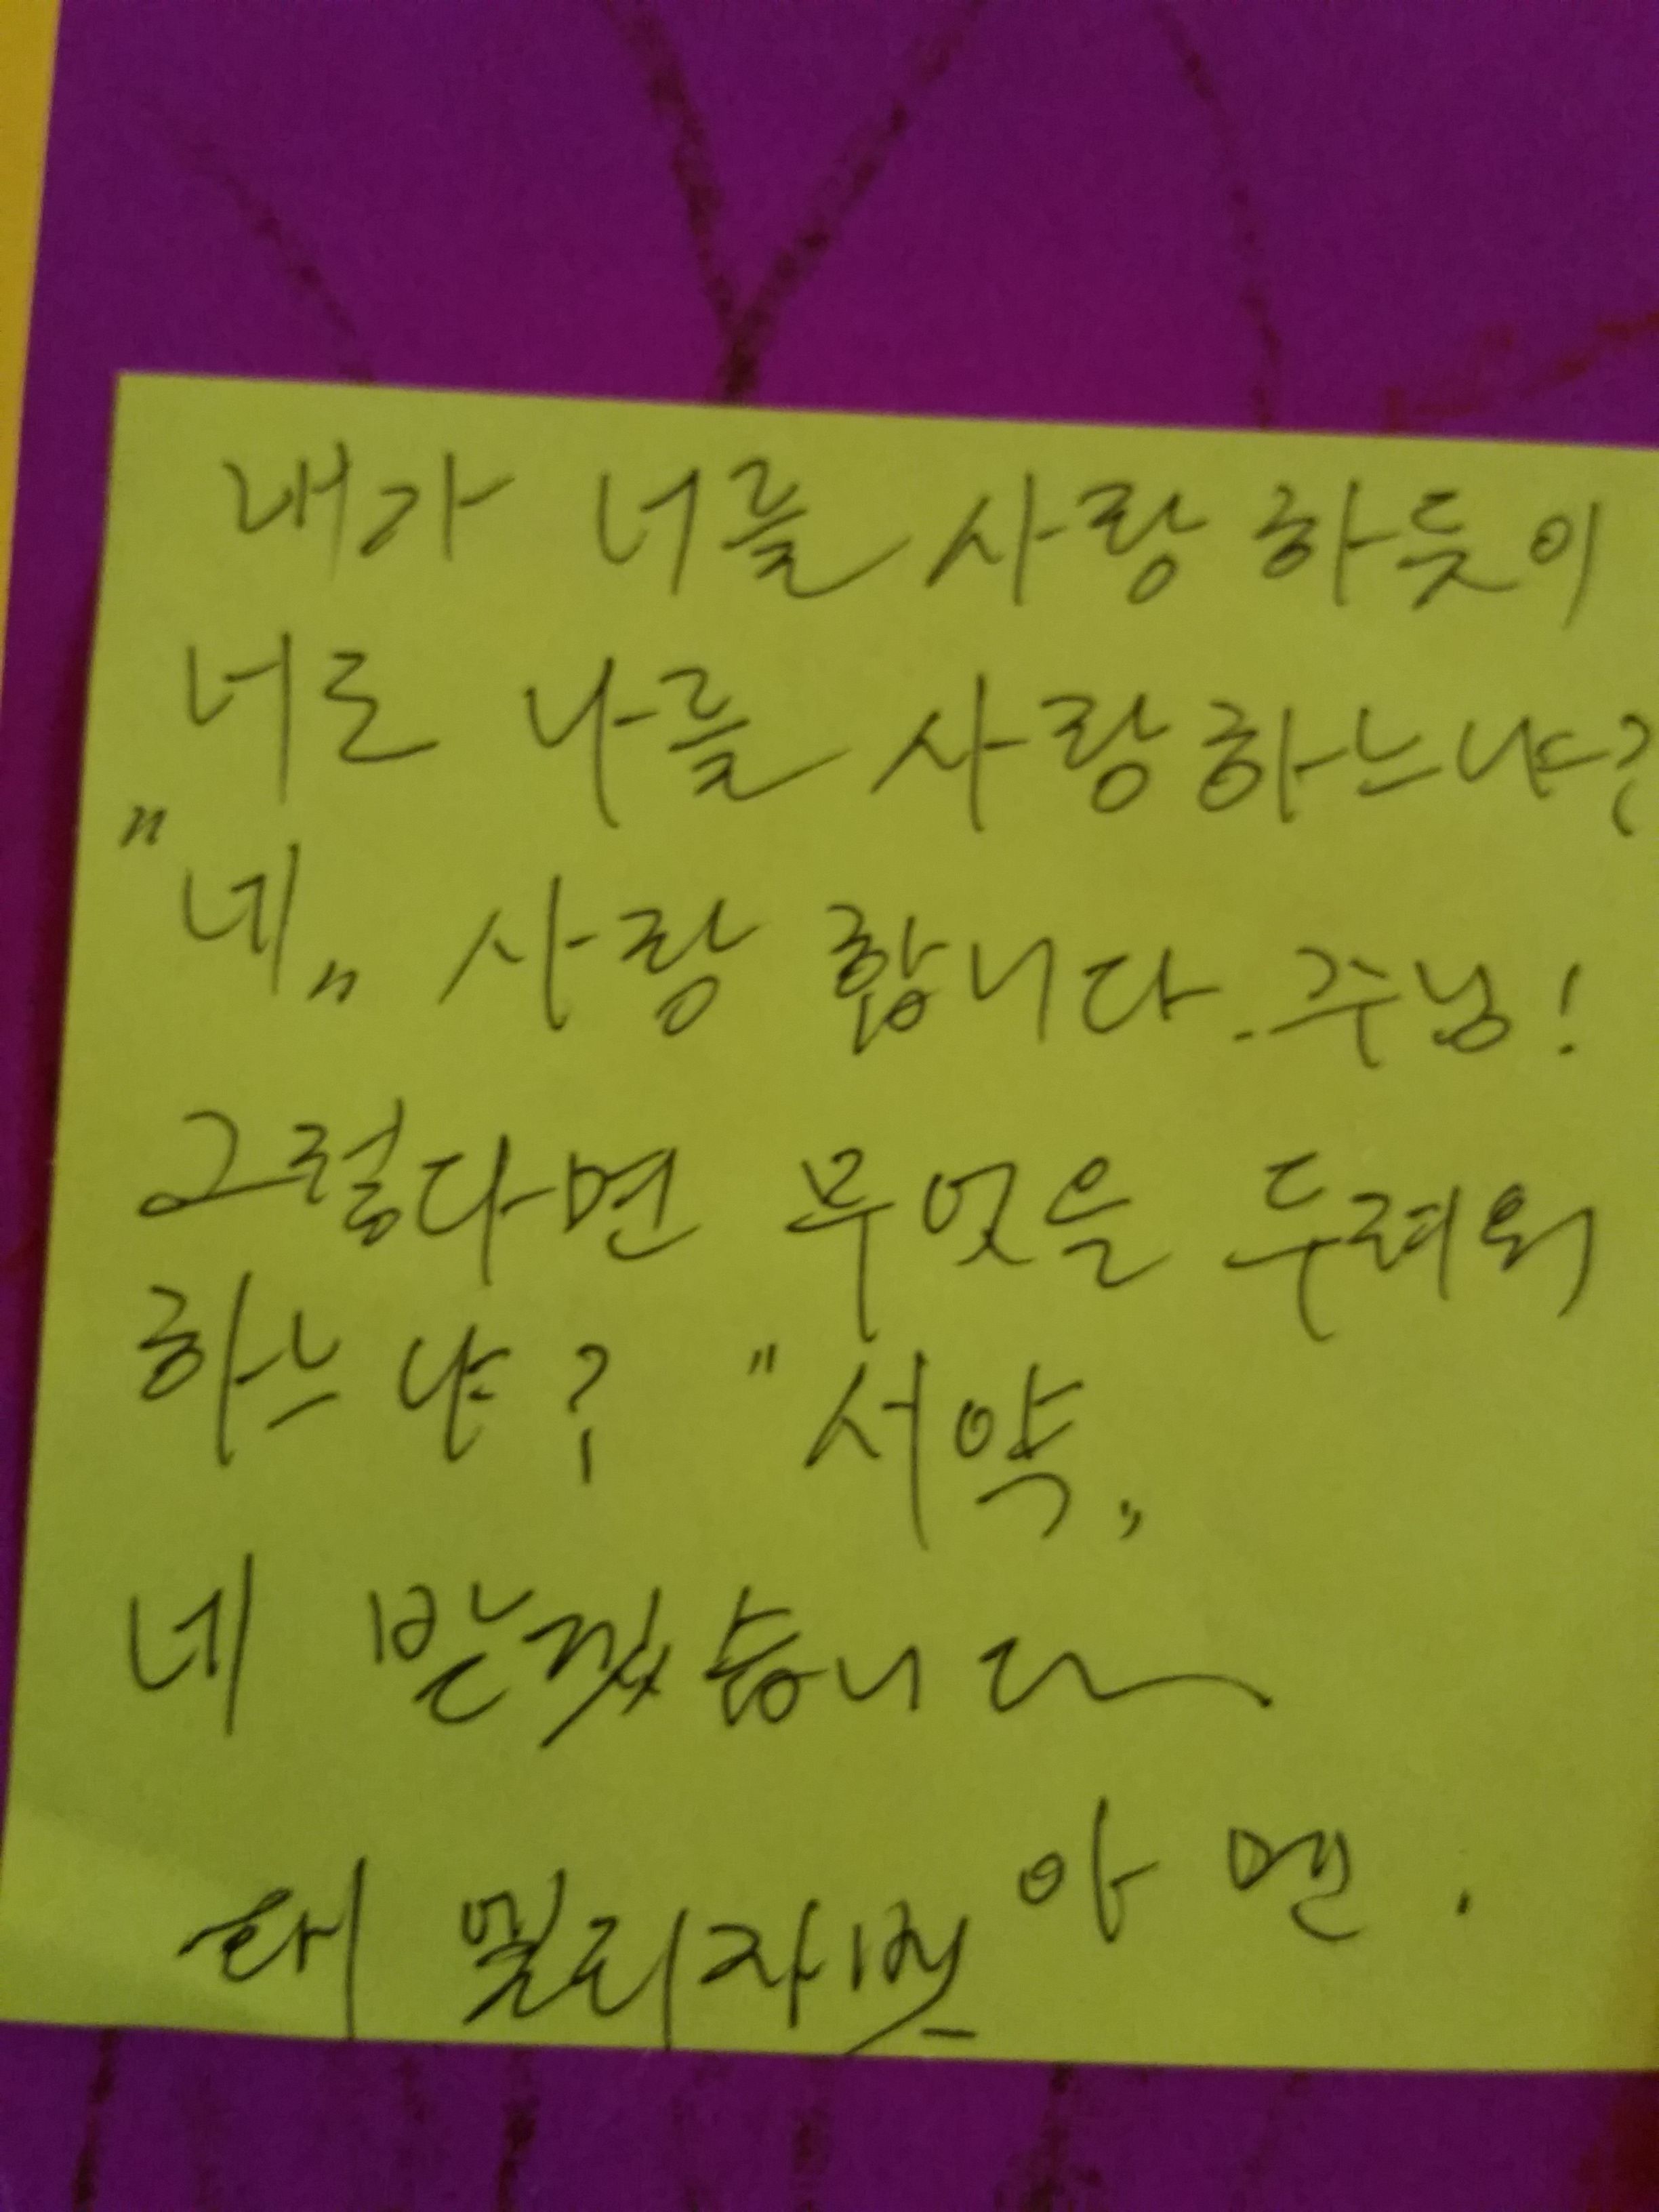 내가 너를 사랑하듯이
너도 나를 사랑하느냐?
"네" 사랑 합니다. 주님!
그렇다면 무엇을 두려워
하느냐? "서약"
네 받겠습니다
아멘.
태 멜리자벳